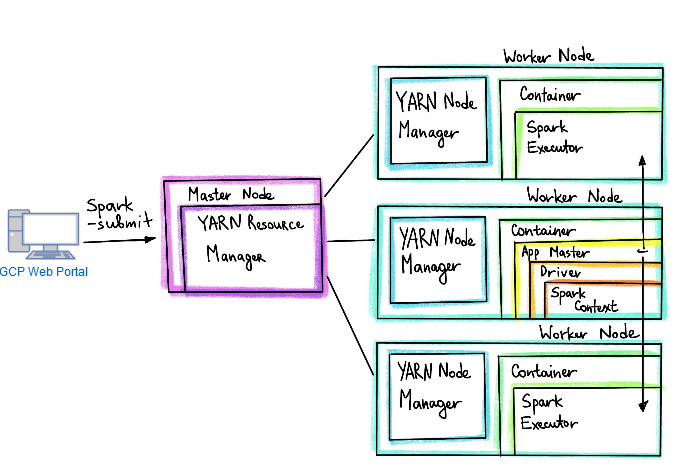 GCP Web Portal
Spark
-submit
Master Node
YARN Resource
Manager
Worker Node
YARN Node
Manager
Container
Spark
Executor
Worker Node
YARN Node
Manager
Container
App Master
Driver
Spark
Context
Worker Node
YARN Node
Manager
Container
Spark
Executor